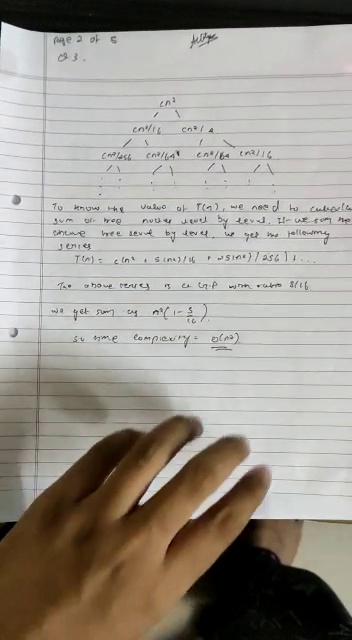 Page 2 of 5
Q3.
cn²
cn²/16 cn²/4
cn²/256 cn²/64 cn²/64 cn²/16
To know the value of T(n), we need to calculate
sum of tree nodes level by level. If we sum the
above tree level by level, we get the following
series
T(n) = c(n² + 5(n²)/16 + 25(n²)/256) + ...
The above series is a G.P with ratio 5/16
we get sum as n²(1 - 5/16).
so time complexity = O(n²)